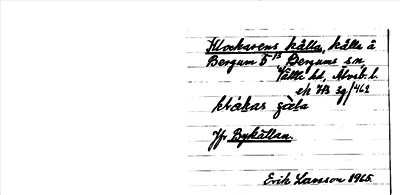 Klockarens källa, källa å
Bergum 5¹³ Bergums sn
Vättle hd, Älvsb. l.
ek 7B 3g/462
klåkas
Jfr Bykällan.
Erik Larsson 1965.